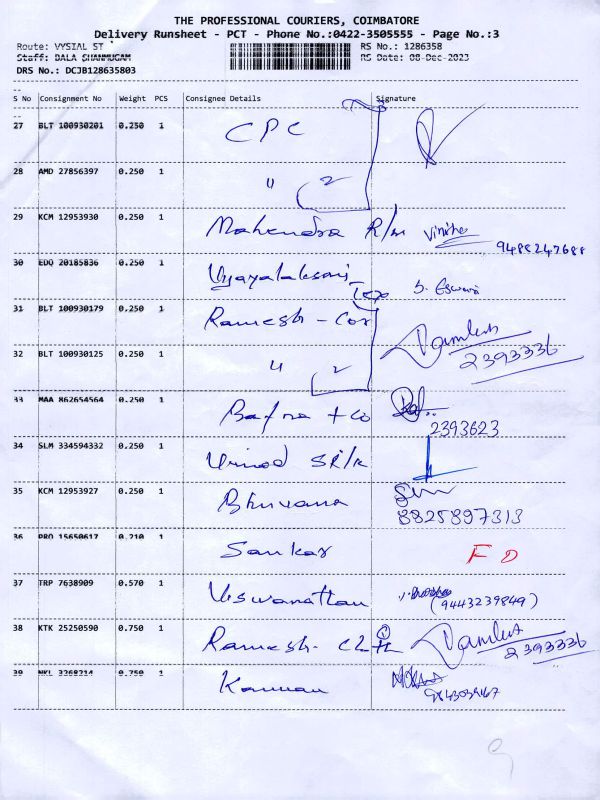 THE PROFESSIONAL COURIERS, COIMBATORE
Delivery Runsheet - PCT - Phone No.:0422-3505555 - Page No.:3
Route: VYSIAL ST RS No.: 1286358
Staff: BALA SHANMUGAM RS Date: 08-Dec-2023
DRS No.: DCJB128635803
S No Consignment No Weight PCS Consignee Details Signature
27 BLT 100930201 0.250 1 CPC
28 AMD 27856397 0.250 1 " 2
29 KCM 12953930 0.250 1 Mahendra R/m
9488247688
30 EDQ 20185836 0.250 1 Vyayalaksmi Tex S. Eswari
31 BLT 100930179 0.250 1 Ramesh - Cor
2393336
32 BLT 100930125 0.250 1 " 2
33 MAA 862654564 0.250 1 Bafna + Co
2393623
34 SLM 334594332 0.250 1 Vinod
35 KCM 12953927 0.250 1 Bhuvana
8825897313
36 PRO 15650617 0.210 1 Sankar F D
37 TRP 7638909 0.570 1 Viswanathan
(9443239849)
38 KTK 25250590 0.750 1 Ramesh
2393336
39 NKL 3268214 0.750 1 Kannan